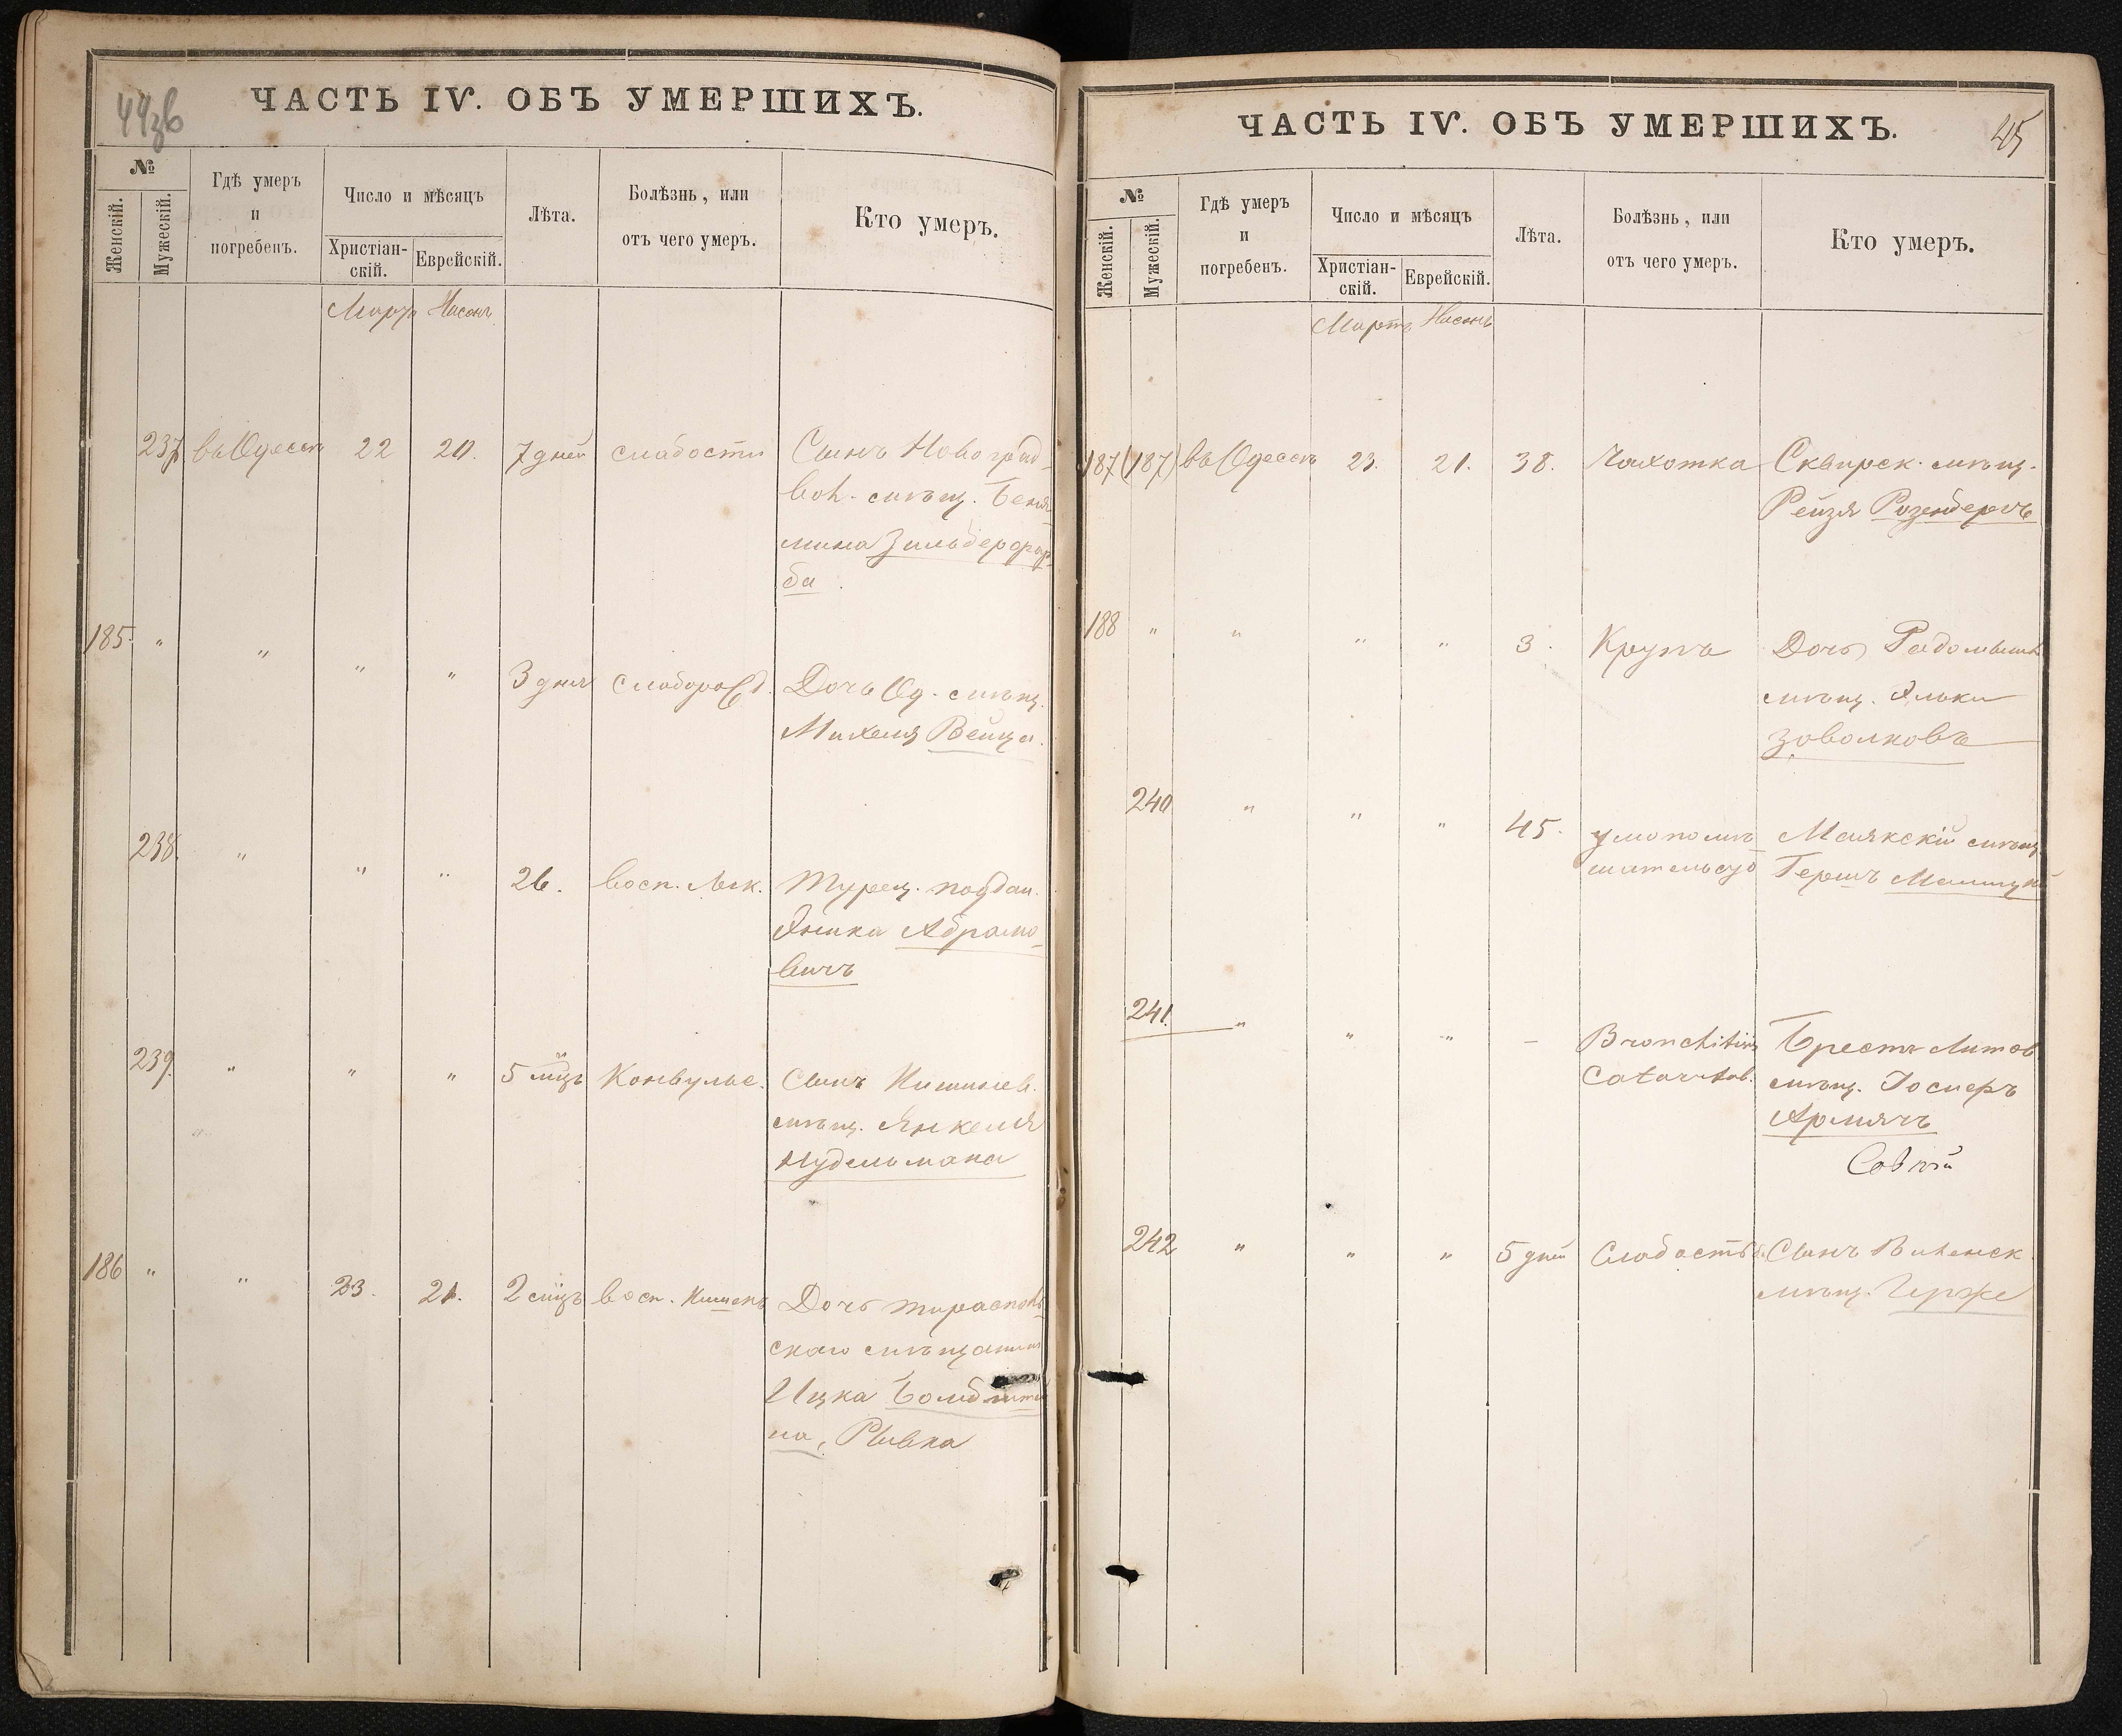 44зв
ЧАСТЬ IV. ОБЪ УМЕРШИХЪ.
№
Женскій.
Мужескій.
Гдѣ умеръ
и
погребенъ.
Число и мѣсяцъ
Христіан-
скій.
Еврейскій.
Лѣта.
Болѣзнь, или
отъ чего умеръ.
Кто умеръ.
Мартъ Нисонъ
237 въ Одессѣ 22 20. 7 дней слабости Сынъ Новоград-
вол. мѣщ. Беня-
мина Зильберфар-
ба
185. " " " " 3 дня слаборожд. Дочь Од. мѣщ.
Михеля Вейца.
238. " " " 26. Восп. Лек. Турец. поддан.
Абрамо-
вичъ
239. " " " 5 мцъ Конвульс. Сынъ Кишинев.
мѣщ. Янкеля
Нудельмана
186 " " 23. 21. 2 мцъ восп. Кишекъ Дочь тираспол-
скаго мѣщанина
Ицка
на, Рывка
ЧАСТЬ IV. ОБЪ УМЕРШИХЪ.
45
№
Женскій.
Мужескій.
Гдѣ умеръ
и
погребенъ.
Число и мѣсяцъ
Христіан-
скій.
Еврейскій.
Лѣта.
Болѣзнь, или
отъ чего умеръ.
Кто умеръ.
Мартъ Нисонъ
187 (187) въ Одессѣ 23. 21. 38. Чахотка Сквирск. мѣщ.
Рейзя Розенбергъ
188 " " " " 3. Крупъ Дочь Радомысл
мѣщ.
Зоволковъ
240 " " " 45. умопомѣ-
шательство Маякскій мѣщ.
Гершъ
241. " " " – Bronchitis Брестъ Литов
Catarrhal. мѣщ. Іосиеръ
242 " " " 5 дней Слабость Сынъ Виленск.
мѣщ. Герже